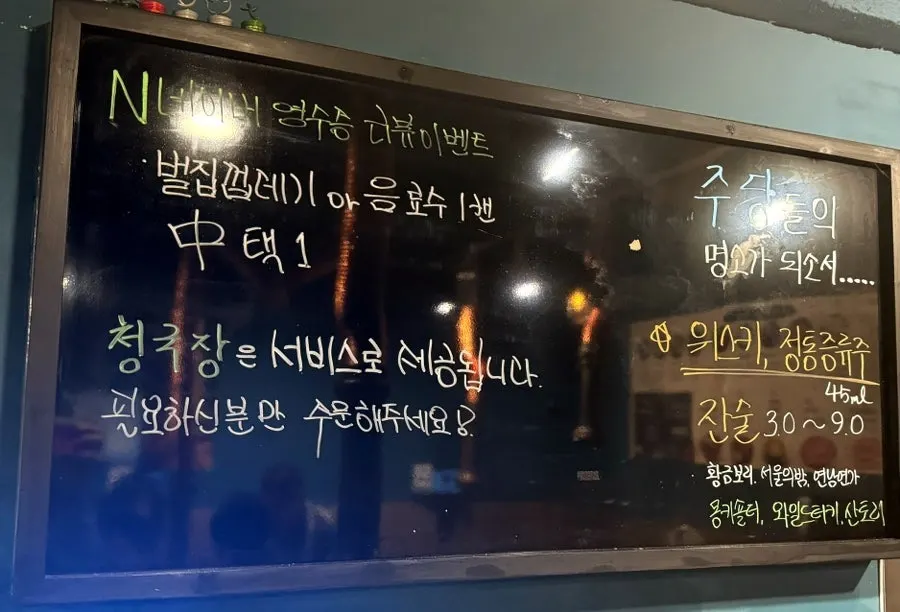 N 네이버 영수증 리뷰이벤트
· 벌집껍데기 or 음료수 1캔
中 택 1
청국장은 서비스로 제공됩니다.
필요하신분만 주문해주세요!
주당들의
명소가 되소서.....
위스키, 정통증류주
45ml
잔술 3.0 ~ 9.0
· 황금보리, 서울의밤, 연남연가
몽키숄더, 와일드터키, 산토리